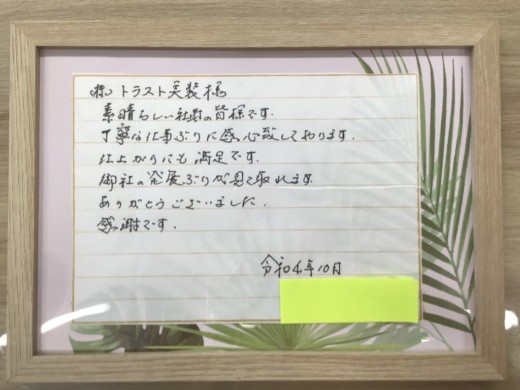 ㈱トラスト美装様
素晴らしい社員の皆様です.
丁寧な仕事ぶりに感心致しております.
仕上がりにも満足です.
御社の発展ぶりが見て取れます.
ありがとうございました.
感謝です.
令和4年10月